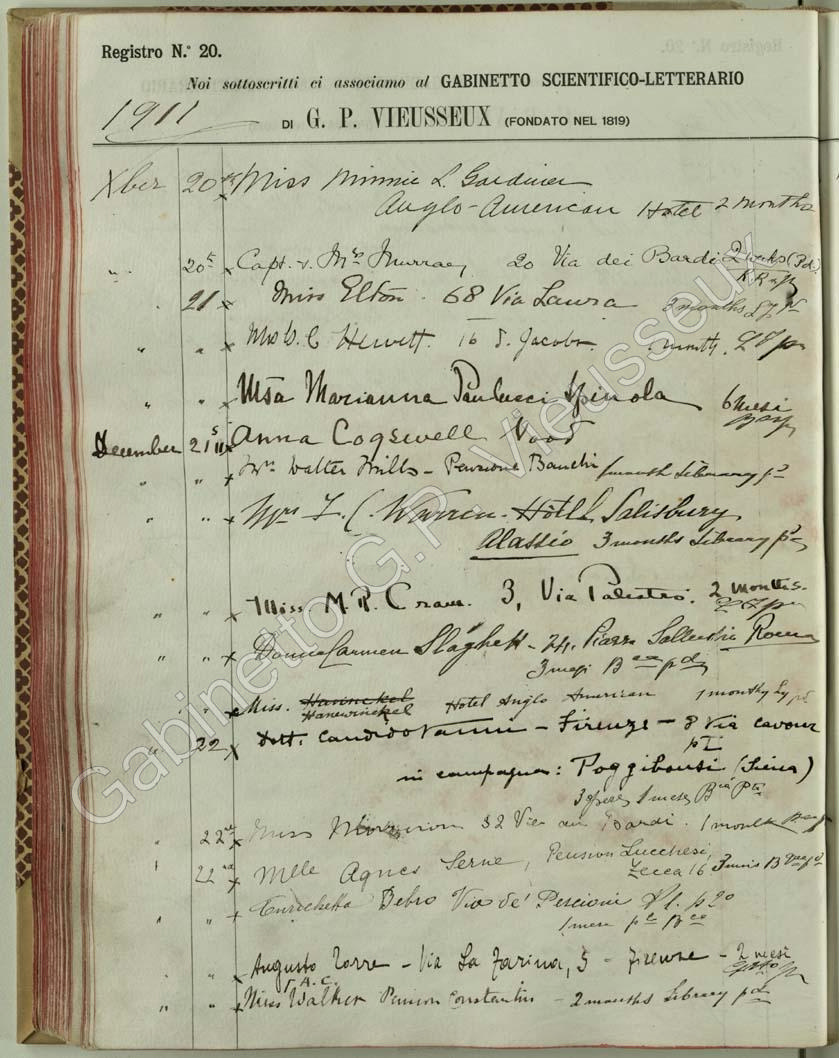 Registro N.° 20.
Noi sottoscritti ci associamo al GABINETTO SCIENTIFICO-LETTERARIO
1911
DI G. P. VIEUSSEUX (FONDATO NEL 1819)
Xber 20th Miss Minnie L. Gardiner
Anglo-American Hotel 2 months
" 20th x Capt. & Mrs Murray, 20 Via dei Bardi 2 weeks (Pd.)
21 x Miss Elton. 68 Via Laura 3 months
" " x Hewett. 16 S. Jacopo. month
" " x Msa Marianna Paulucci Spinola 6 mesi
December 21st x Anna Cogswell Wood
" " x Mrs Walter Mills - Pensione Banchi 1 month Library pd
" " x Mrs F. C. Warren. Hôtel Salisbury
Alassio 3 months Library pd
" " x Miss. M. R. Crane. 3, Via Palestro. 2 months.
" " x Donna Carmen - 74. Piazza Sallustio Roma
3 mesi pd
" " x Miss. Hanwinckel Hotel Anglo American 1 month Ly pd
" 22 x Dott. Candido Vanni - Firenze - 8 Via Cavour
p I
in campagna: Poggibonsi (Siena)
3 opere 1 mese
" 22nd x Miss 32 Via dei Bardi. 1 month
22nd x Mlle Agnes Serne, Pension Lucchesi,
Zecca 16 3 mois
" " x Enrichetta Debro Via de' Pescioni
1 mese
" " x Augusto Torre - Via La Farina, 5 - Firenze - 2 mesi
F. A. C.
" " x Miss Walker Pension Constantin - 2 months Library pd
Gabinetto G.P. Vieusseux